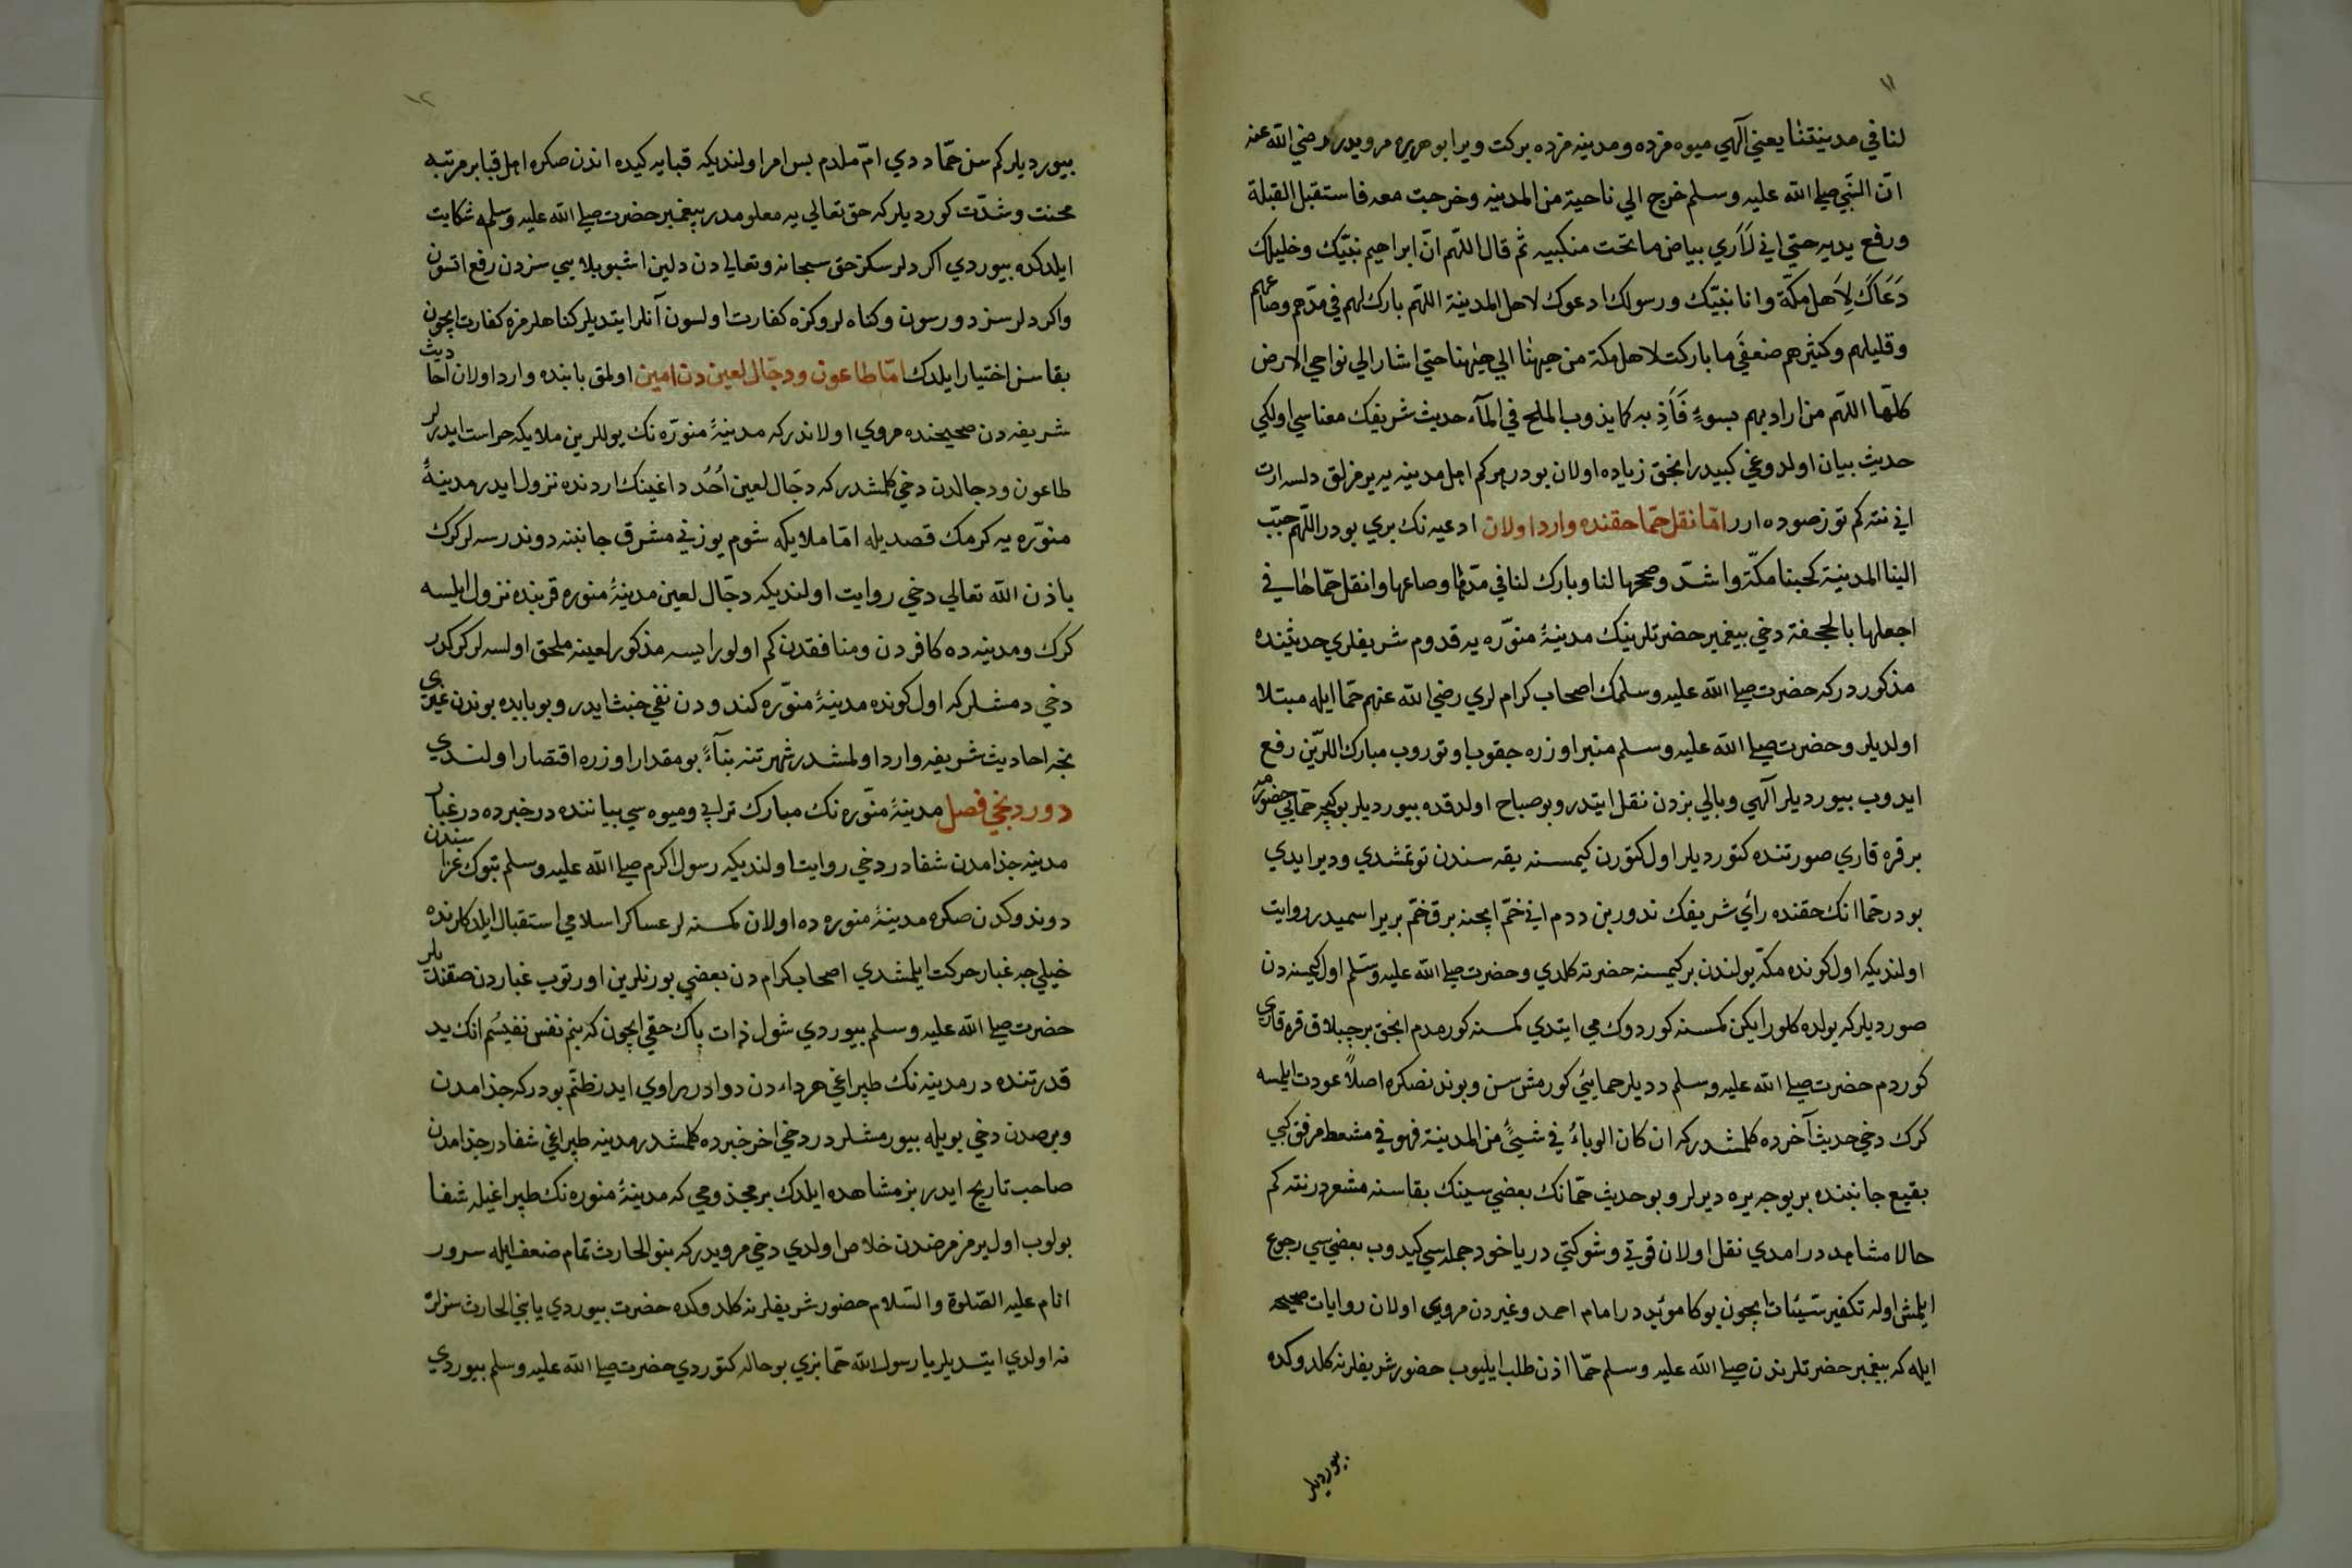 ١١
لنا في مدينتنا يعني آلهي ميوه مزده ومدينه مزده بركت وير ابو هريره مرويدر رضي الله عنه
انّ النّبي صلے الله عليه وسلم خرج الي ناحية من المدينه وخرجت معه فاستقبل القبلة
ورفع يديه حتي اني لَاَري بياض ما تحت منكبيه ثم قال اللّهم انّ ابراهيم نبيّك وخليلك
دَعَاكَ لِاَهل مكّة وانا نبيّك ورسولك ادعوك لاهل المدينة اللّهم بارك لهم في مدّهم وصاعهم
وقليلهم وكثيرهم ضعفَي ما باركت لاهل مكة من ههنا الي ههنا حتي اشار الي نواحي الارض
كلهّا اللّهم من ارادبهم بسوءٍ فَاَذِبه كما يذوب الملح في المآء حديث شريفك معناسي اولكي
حديث بيان اولدوغي كبيدر انجق زياده اولان بودر هركم اهل مدينه يه يرمزلق دلسه ارت
اني نته كم توز صوده ارر امّا نقل حمّا حقنده وارد اولان ادعيه نك بري بودر اللّهم حبّب
الينا المدينة كحبنا مكّة واشدّ وصححها لنا وبارك لنا في مدّها وصاعها وانقل حمّاها في
اجعلها بالجحفة دخي بيغمبر حضرتلرينك مدينۀ منوّره يه قدوم شريفلري حديثنده
مذكور دركه حضرت صلے الله عليه وسلمك اصحاب كرام لري رضي الله عنهم حمّا ايله مبتلا
اولديلر وحضرت صلے الله عليه وسلم منبر اوزره جقوب اوتوروب مبارك اللرين رفع
ايدوب بيورديلر آلهي وبالي بزدن نقل ايتدر وبو صباح اولدقده بيورديلر بوكيجه حمّايي حضورمه
برقره قاري صورتنده كتورديلر اول كتورن كيمسنه يقه سندن توتمشدي ودير ايدي
بودر حمّا انك حقنده رأي شريفك ندور بن ددم اني خمّ ايجنه برق خمّ بر ير اسميدر روايت
اولنديكه اول كونده مكّه يولندن بر كيمسنه حضرته كلدي وحضرت صلے الله عليه وسلم اول كيمسنه دن
صورديلركه يولده كلورايكن كمسنه كوردوك مي ايتدي كمسنه كورمدم انجق بر جبلاق قره قاري
كوردم حضرت صلے الله عليه وسلم دديلر حمايي كورمش سن وبوندنصكره اصلاً عودت ايلمسه
كرك دخي حديث آخرده كلمشدركه ان كان الوباءُ في شيئٍ من المدينة فهو في مشعط مرفق كبي
بقيع جانبنده بر يوجه يره ديرلر وبو حديث حمّانك بعضي سينك بقاسنه مشعردر نته كم
حالا مشاهددر امدي نقل اولان قوتي وشوكتي در ياخود جمله سي كيدوب بعضي سي رجوع
ايلمش اوله تكفير سيّئات ايچون بوكا مويّد در امام احمد وغيردن مروي اولان روايات صحيحه
ايله كه بيغمبر حضرتلرندن صلے الله عليه وسلم حمّا اذن طلب ايليوب حضور شريفلرنه كلدوكده
بيورديلر
١٢
بيورديلركم سن حمّا ددي امّ ملدم بس امر اولنديكه قبايه كيده اندن صكره اهل قبا بر مرتبه
محنت وشدّت كورديلركه حق تعالي يه معلومدر پيغمبر حضرت صلے الله عليه وسلمه شكايت
ايلدكده بيوردي اكر دلرسكز حق سبحانه وتعالي دن دلين اشبو بلايي سزدن رفع اتسون
واكر دلرسز دورسون وكناه لروكزه كفارت اولسون آنلر ايتديلر كناهلرمزه كفارت ايچون
بقاسن اختيار ايلدك امّا طاعون ودجّال لعين دن امين اولمق بابنده وارد اولان احاديث
شريفه دن صحيحنده مروي اولاندركه مدينۀ منوّره نك يوللرين ملايكه حراست ايدرلر
طاعون ودجالدن دخي كلمشدركه دجّال لعين اُحُد داغينك اردنده نزول ايدر مدينۀ
منوّره يه كرمك قصديله امّا ملايكه شوم يوزني مشرق جانبنه دوندرسه لركرك
باذن الله تعالي دخي روايت اولنديكه دجّال لعين مدينۀ منوره قربنده نزول ايلسه
كرك ومدينه ده كافردن ومنافقدن كم اولورايسه مذكور لعينه ملحق اولسه لركركدر
دخي دمشلركه اول كونده مدينۀ منوّره كندودن نفي خبث ايدر وبو بابده بوندن غيري
نجه احاديث شريفه وارد اولمشدر شهرتنه بنآءً بو مقدار اوزره اقتصار اولندي
دوردنجي فصل مدينۀ منّوره نك مبارك ترابي وميوه سي بياننده در خبرده در غبار
مدينه جذامدن شفادر دخي روايت اولنديكه رسول اكرم صلے الله عليه وسلم تبوك غزاسندن
دوندوكدن صكره مدينۀ منوره ده اولان كمسنه لر عساكر اسلامي استقبال ايلدكلرنده
خيلي جه غبار حركت ايلمشدي اصحاب كرام دن بعضي بورنلرين اورتوب غباردن صقنديلر
حضرت صلے الله عليه وسلم بيوردي شول ذات پاك حقي ايچون كه بنم نفس نفيسُم انك يد
قدرتنده در مدينه نك طپراغي هر داءدن دوادر راوي ايدر ظنّم بودركه جذامدن
وبرصدن دخي بويله بيورمشلردر دخي اخر خبرده كلمشدر مدينه طپراغي شفادر جذامدن
صاحب تاريخ ايدر بز مشاهده ايلدك بر مجذومي كه مدينۀ منوره نك طپراغيله شفا
بولوب اول يرمز مرضندن خلاص اولدي دخي مرويدركه بنو الحارث تمام ضعف ايله سرور
انام عليه الصّلوة والسّلام حضور شريفلرنه كلدوكده حضرت بيوردي يا بني الحارث سزلره
نه اولدي ايتديلر يا رسول الله حمّا بزي بو حاله كتوردي حضرت صلے الله عليه وسلم بيوردي